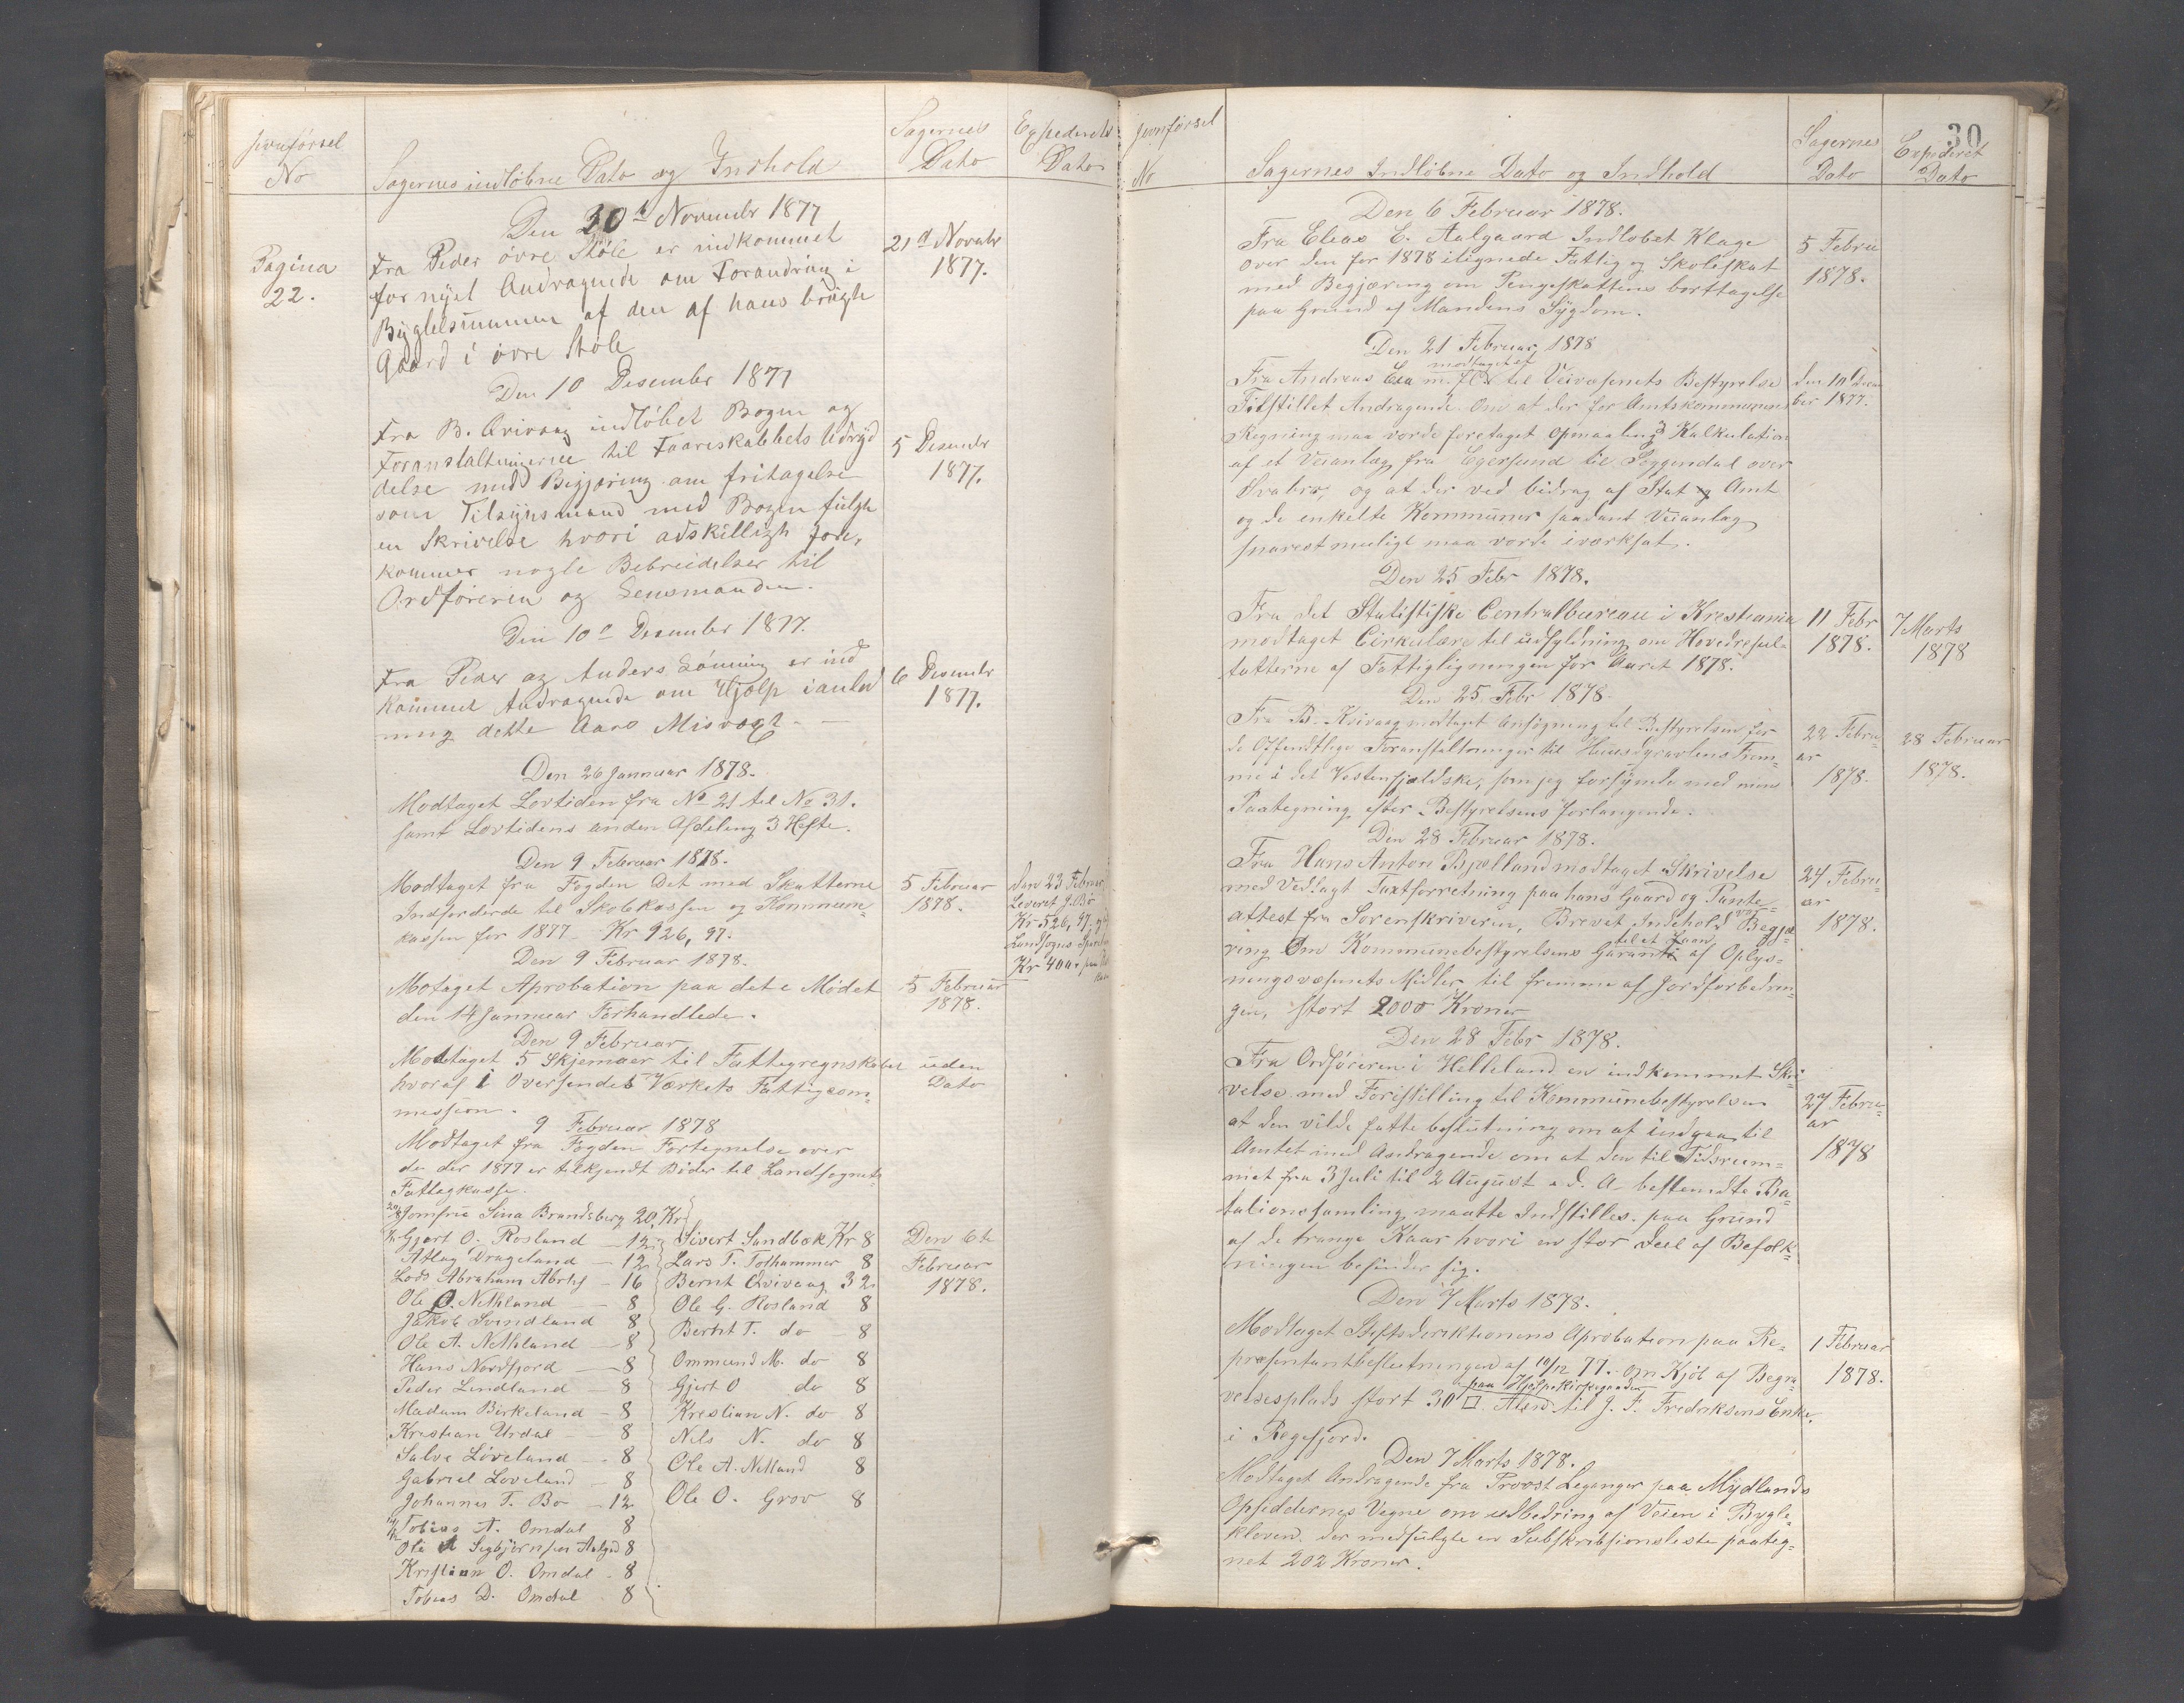 Jevnførsel
No
Sagernes indløbne Dato og Indhold
Sagernes
Dato
Expederede
Dato
Den 30te November 1877
Pagina
22.
Fra Peder øvre Støle er indkommet
fornyet Andragende om Forandring i
Bygselsummen af den af hans brugte
Gaard i øvre Støle
21d Novembr
1877.
Den 10 Desember 1877
Fra B. Qvivaag indløbet Bogen og
Foranstaltningerne til Faareskabbets Udryd
delse med Begjæring om fritagelse
som Tilsynsmand med Bogen fulgte
en Skrivelse hvori adskilligt fore,
kommer nogle Bebreidelser til
Ordføreren og Lensmanden.
5 Desembr
1877.
Den 10de Desember 1877.
Fra Peder og Anders Lønning er ind
kommet Andragende om Hjælp i anled
ning dette Aars Misvægt
6 Desembr
1877.
Den 26 Januar 1878.
Modtaget Lovtiden fra No 21 til No 31.
samt Lovtidens anden Afdeling 3 Hefte.
Den 9 Februar 1878.
Modtaget fra Fogden Det med Skatterne
Indfordrede til Skolekassen og Kommune
kassen for 1877 Kr 926,97.
5 Februar
1878.
den 23 Februar
Leveret J. Bø
Kr 526,97,
Landsogns
Kr 400
Den 9 Februar 1878.
Motaget Aprobation paa det i Mødet
den 14 Januar Forhandlede.
5 Februar
1878.
Den 9 Februar
Modtaget 5 Skjemaer til Fattigregnskabet
hvoraf 1 Oversendes Værkets Fattigcom=
mission.
uden
Dato
9 Februar 1878
Modtaget fra Fogden Fortegnelse over
de der 1877 er tilkjendt Bøder til Landsognets
Fattigkasse.
Jomfrue Sina Brandsberg 20 Kr
Gjert O. Rosland — 12
Atlag Drageland — 12
Lods Abraham Abrhs — 16
Ole O. Nethland — 8
Jakob Svindland 8
Ole A. Nethland — 8
Hans Nordfjord — 8
Peder Lindland — 8
Madam Birkeland — 8
Kristian Urdal — 8
Salve Løveland — 8
Gabriel Løveland — 8
Johannes T. Bø — 12
Tobias A. Omdal 8
Ole A Segbjørnsen Aalgd 8
Kristian O. Omdal . 8
Tobias D. Omdal 8
Sivert Sandbæk Kr 8
Lars T. Tothammer 8
Bernt Qvivaag 32
Ole G. Rosland 8
Bernt T. do — 8
Ommund M. do 8
Gjert O do 8
Krestian N. do 8
Nils N. do 8
Ole A. Netland 8
Ole O. Grov 8
Den 6te
Februar
1878.
Jevnførsel
No
Sagernes Indløbne Dato og Indhold
Sagernes
Dato
30
Expederet
Dato
Den 6 Februar 1878.
Fra Elias E. Aalgaard Indløbet Klage
over den for 1878 ilignede Fattig og Skoleskat
med Begjæring om Pengeskattens borttagelse
paa Grund af Mandens Sygdom.
5 Februar
1878.
Den 21 Februar 1878
modtaget et
Fra Andreas Eia m. fl. til Veivæsnets Bestyrelse
Tilstillet Andragende Om at der for Amtskommunens
Regning maa vorde foretaget Opmaaling & Kalkulation
af et Veianlæg fra Egersund til Soggendal over
Svabro, og at der ved bidrag af Stat og Amt
og de enkelte Kommuner saadant Veianlæg
snarest muligt maa vorde iværksat.
den 10 Decem
ber 1877.
Den 25 Febr 1878.
Fra det Statistiske Centralbureau i Kristiania
modtaget Cirkulære til udfyldning om Hovedresul=
tatterne af Fattigligningen for Aaret 1878.
11 Febr
1878.
7 Marts
1878
Den 25 Febr 1878.
Fra B. Kvivaag modtaget Ansøgning til Bestyrelsen for
de Offentlige Foranstaltninger til Huusdyravlens Frem=
me i det Vestenfjeldske, som jeg forsynede med min
Paategning efter Bestyrelsens forlangende.
22 Febru=
ar
1878.
28 Februar
1878.
Den 28 Februar 1878.
Fra Hans Anton Bjælland modtaget Skrivelse
med Vedlagt Taxtforretning paa hans Gaard og Pante=
attest fra Sorenskriveren, Brevet Indeholdt Begjæ
til et Laan
ring Om Kommunebestyrelsens Garanti af Oplys=
ningsvæsnets Midler til fremme af Jordforbedrin=
gen, stort 2000 Kroner
24 Febru=
ar
1878.
Den 28 Febr 1878.
Fra Ordføreren i Helleland en indkommet Skri=
velse med Forestilling til Kommunebestyrelsen
at den vilde fatte beslutning om at indgaa til
Amtet med Andragende om at den til Tidsrum=
met fra 3 Juli til 2 August d. A. bestemdte Ba=
talionssamling maatte Indstilles. paa Grund
af de trange Kaar hvori en stor Deel af Befolk=
ningen befinder sig.
27 Febru=
ar
1878
Den 7 Marts 1878.
Modtaget Stiftsdirektionens Aprobation paa Re=
præsentantbeslutningen af 10/12 77. Om Kjøb af Begra=
paa Hjelpekirkegaarden
velsesplads stort 30 □ Alen til J. F. Fredriksens Enke
i Rægefjord.
1 Februar
1878.
Den 7 Marts 1878.
Modtaget Andragende fra Provst Leganger paa Mydlands
Opsiddernes Vegne om udbedring af Veien i Bygle=
kloven. der medfulgte en Subskribsionsliste paateg=
net 202 Kroner.